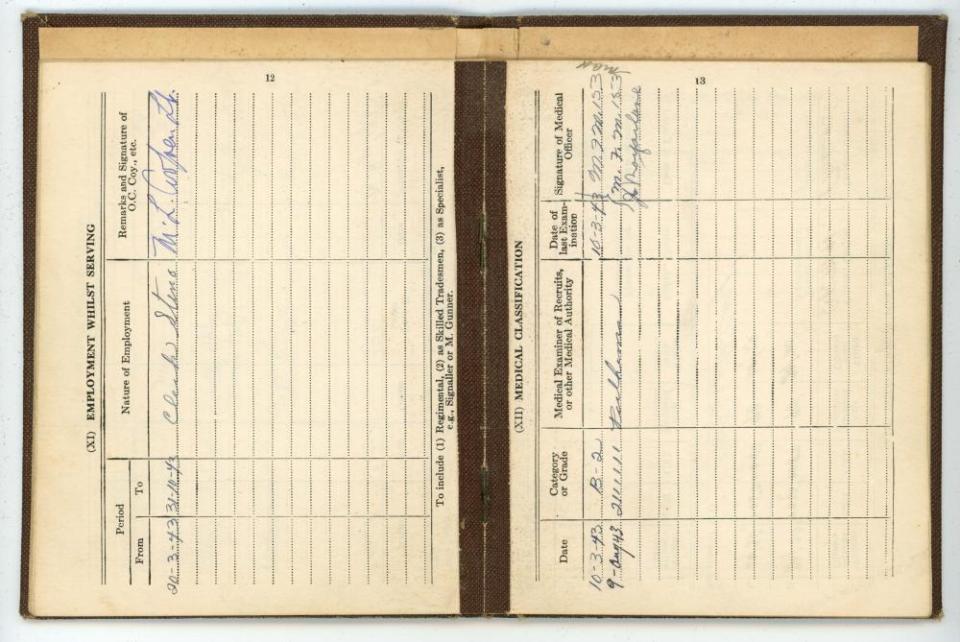 12
(XI) EMPLOYMENT WHILST SERVING
Period
From
To
Nature of Employment
Remarks and Signature of
O.C. Coy., etc.
20-3-43 31-10-43 Clerk Steno M. L.
To include (1) Regimental, (2) as Skilled Tradesmen, (3) as Specialist,
e.g., Signaller or M. Gunner.
13
(XII) MEDICAL CLASSIFICATION
Date
Category
or Grade
Medical Examiner of Recruits,
or other Medical Authority
Date of
last Exam-
ination
Signature of Medical
Officer
10-3-43 B-2 10-3-43 M.F.M. 153
9-Aug 43 2111111 M.F.M. 153